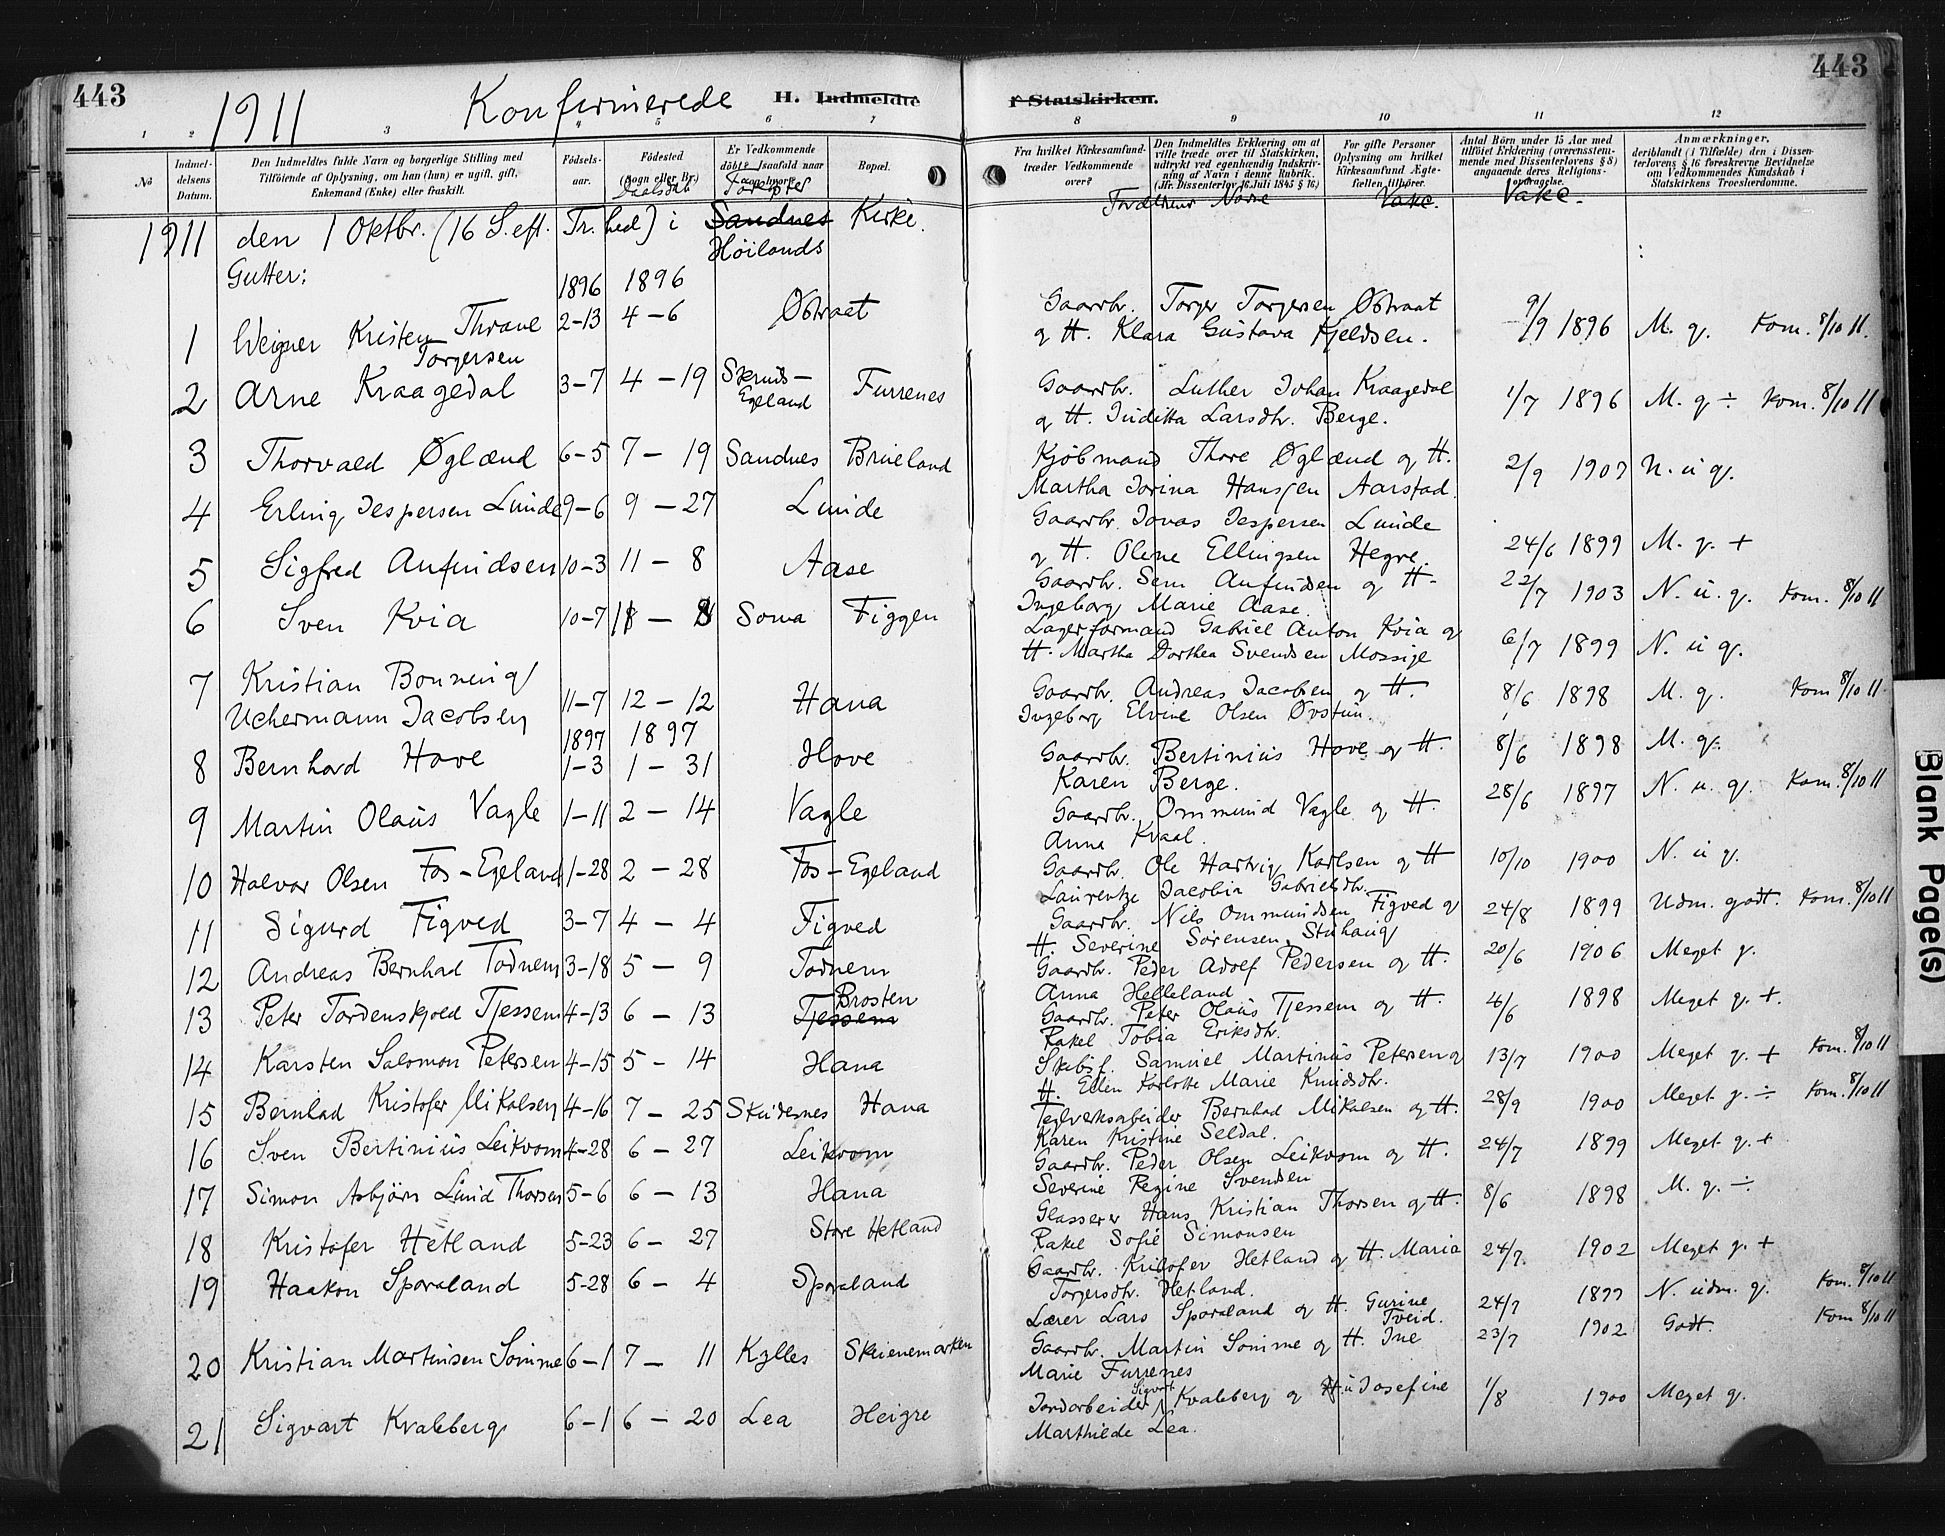 443
443
1911 Konfirmerede H. Indmeldte i Statskirken.
1 2 3 4 5 6 7 8 9 10 11 12
No
Indmeldelsens Datum.
Den Indmeldtes fulde Navn og borgerlige Stilling med Tilföiende af Oplysning, om han (hun) er ugift, gift, Enkemand (Enke) eller fraskilt.
Födsels-aar.
Födested (Sogn eller By.) Daabsdat
Er Vedkommende döbt?
Bopel.
Fra hvilket Kirkesamfund træder Vedkommende over?
Den Indmeldtes Erklæring om at ville træde over til Statskirken, udtrykt ved egenhændig Indskrivning af Navn i denne Rubrik. (Jfr. Dissenterlov 16 Juli 1845 § 16.)
For gifte Personer Oplysning om hvilket Kirkesamfund Ægtefællen tilhører.
Antal Börn under 15 Aar med tilföiet Erklæring (overensstemmende med Dissenterlovens § 8) angaaende deres Religionsopdragelse.
Anmærkninger, deriblandt (i Tilfælde) den i Dissenterlovens § 16 foreskrevne Bevidnelse om Vedkommendes Kundskab i Statskirkens Troeslærdomme.
Forældrenes Navne Vakc. Vakc.
1911 den 1 Oktbr. (16 S. eft. Tr. hed) i Sandnes Kirke.
Höilands
Gutter: 1896 1896
1 Weiner Kristen Thrane Torgersen 2-13 4-6 Østraat Gaardbr. Torger Torgersen Østraat og H. Klara Gustava Kjeldsen. 9/9 1896 M. g. Kom. 8/10 11.
2 Arne Kraagedal 3-7 4-19 Skruds-Egeland Furrenes Gaardbr. Luther Johan Kraagedal og H. Inditta Larsdtr. Berge. 1/7 1896 M. g ÷ Kom. 8/10 11
3 Thorvald Øglænd 6-5 7-19 Sandnes Brueland Kjöbmand Thore Øglænd og H. Martha Jorina Hansen Aarstad. 2/9 1907 N. u g.
4 Erling Jespersen Lunde 9-6 9-27 Lunde Gaardbr. Jonas Jespersen Lunde og H. Olene Ellingsen Hegre. 24/6 1899 M. g. +
5 Sigfred Anfindsen 10-3 11-8 Aase Gaardbr. Sem Anfindsen og H. Ingeborg Marie Aase. 22/7 1903 N. u. g. Kom. 8/10 11
6 Sven Kvia 10-7 Soma Figgen Lagerformand Gabriel Anton Kvia og H. Martha Dorthea Svendsen Mossige 6/7 1899 N. u g.
7 Kristian Bonnevig Uchermann Jacobsen 11-7 12-12 Hana Gaardbr. Andreas Jacobsen og H. Ingeborg Elvine Olsen Øvstun. 8/6 1898 M. g. Kom 8/10 11
1897 1897
8 Bernhard Hove 1-3 1-31 Hove Gaardbr. Bertinius Hove og H. Karen Berge. 8/6 1898 M. g.
9 Martin Olaus Vagle 1-11 2-14 Vagle Gaardbr. Ommund Vagle og H. Anna Kvaal. 28/6 1897 N. u. g. Kom. 8/10 11
10 Halvor Olsen Fos-Egeland 1-28 2-28 Fos-Egeland Gaardbr. Ole Hartvig Karlsen og H Laurentze Jacobia Gabrielsdtr. 10/10 1900 N. u g.
11 Sigurd Figved 3-7 4-4 Figved Gaardbr. Nils Ommundsen Figved og H. Severine Sörensen Stuhaug 24/8 1899 Udm. godt. Kom. 8/10 11
12 Andreas Bernhad Todnem 3-18 5-9 Todnem Gaardbr. Peder Adolf Pedersen og H. Anna Helleland 20/6 1906 Meget g.
13 Peter Tordenskjold Tjessem 4-13 6-13 Tjessem Brosten Gaardbr. Peter Olaus Tjessem og H. Rakel Tobia Eriksdtr. 4/6 1898 Meget g. +.
14 Karsten Salomon Petersen 4-15 5-14 Hana Skibsf. Samuel Martinius Petersen og H. Ellen Karlotte Marie Knudsdtr. 13/7 1900 Meget g. + Kom. 8/10 11
15 Bernhad Kristofer Mikalsen 4-16 7-25 Skudesnes Hana Teglverksarbeider Bernhad Mikalsen og H. Karen Kristine Seldal. 28/9 1900 Meget g. ÷ Kom. 8/10 11
16 Sven Bertinius Leikvam 4-28 6-27 Leikvam Gaardbr. Peder Olsen Leikvam og H. Severine Regine Svendsen 24/7 1899 Meget g. +
17 Simon Asbjörn Lund Thorsen 5-6 6-13 Hana Glasserer Hans Kristian Thorsen og H. Rakel Sofie Simonsen 8/6 1898 M. g. ÷.
18 Kristofer Hetland 5-23 6-27 Store Hetland Gaardbr. Kristofer Hetland og H. Maria Torgersdtr. Hetland. 24/7 1902 Meget g. +
19 Haakon Sporaland 5-28 6-4 Sporaland Lærer Lars Sporaland og H. Gurine Tveid. 24/7 1899 N. udm. g. Kom. 8/10 11
20 Kristian Martinsen Sömme 6-1 7-11 Kylles Skeienemarken Gaardbr. Martin Sömme og H. Ine Marie Furrenes 23/7 1902 Godt. Kom 8/10 11
21 Sigvart Kvaleberg 6-1 6-20 Lea Heigre Jordarbeider Sigvart Kvaleberg og H. Josefine Marthilde Lea. 1/8 1900 Meget g.
Blank Page(s)